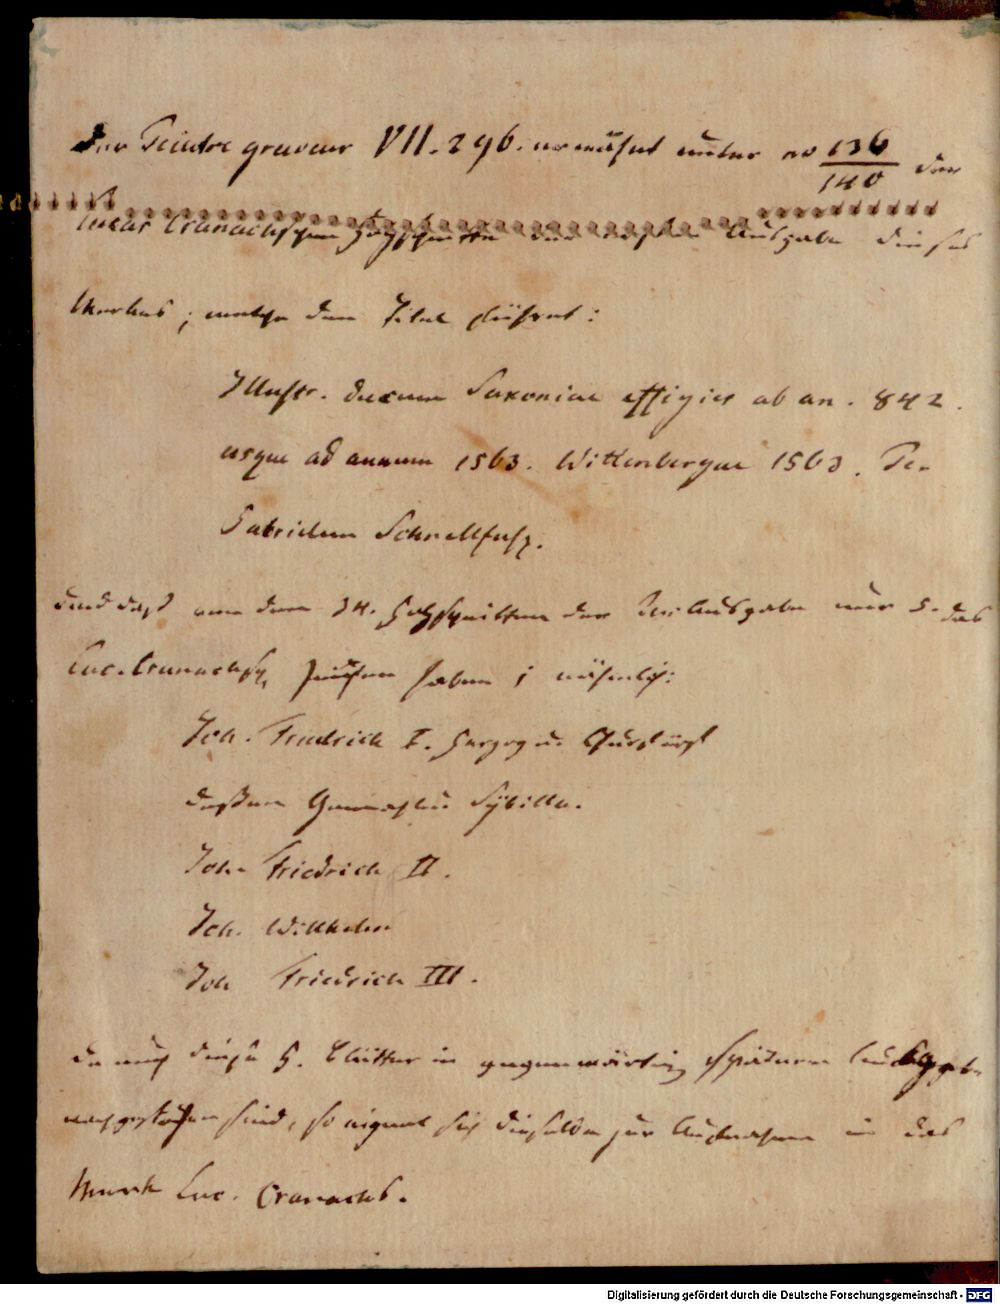 Der Peintre graveur VII. 296. erwähnt unter no 136/140 der
Lucas Cranachschen Holzschnitte der ersten Ausgabe dieses
Werkes; welche den Titel führet:
Illustr. ducum Saxoniae effigies ab an. 842.
usque ad annum 1563. Wittenbergae 1563. Per
Gabrielem Schnellholz.
und daß von den 34. Holzschnitten der Ausgabe nur 5. das
Luc. Cranachsch. Zeichen haben; nähmlich:
Joh. Friedrich I. Herzog u. Churfürst
deßen Gemahlin Sybilla.
Joh. Friedrich II.
Joh. Wilhelm
Joh Friedrich III.
da auch diese 5. Blätter in gegenwärtig späterer Ausgabe
nachgestochen sind, so eignet sich dieselbe zur Aufnahme in das
Werk Luc. Cranachs.
Digitalisierung gefördert durch die Deutsche Forschungsgemeinschaft - DFG